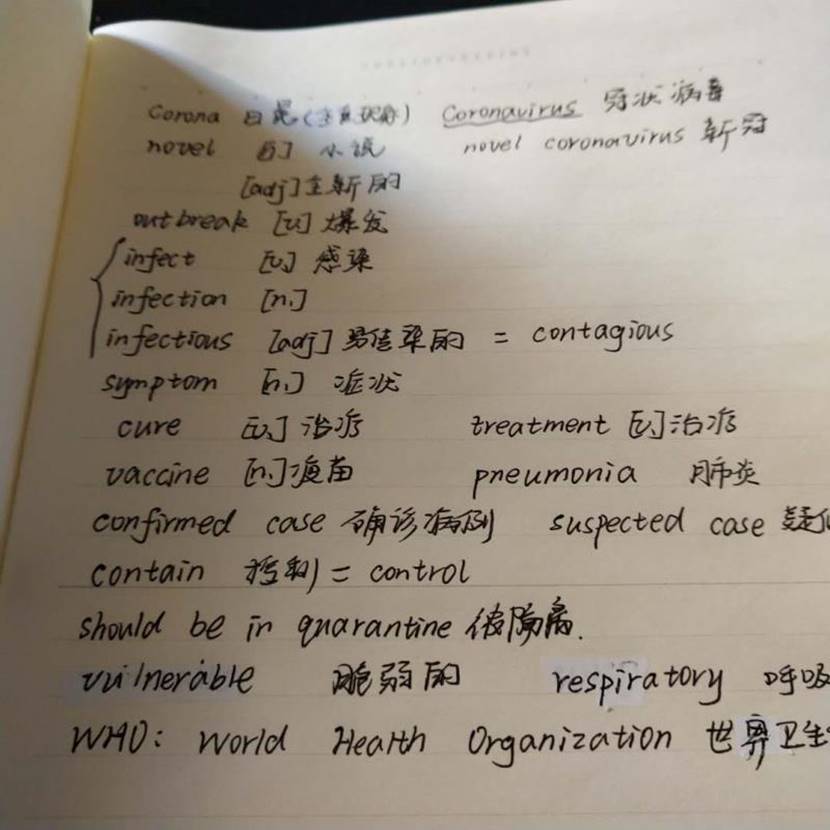 Corona 日冕(全食现象) Coronavirus 冠状病毒
novel [n] 小说 novel coronavirus 新冠
[adj]全新的
outbreak [v] 爆发
infect [v] 感染
infection [n.]
infectious [adj] 易传染的 = contagious
symptom [n.] 症状
cure [v.] 治疗 treatment [v.]治疗
vaccine [n]疫苗 pneumonia 肺炎
confirmed case 确诊病例 suspected case 疑似
contain 控制 = control
should be in quarantine 被隔离.
vulnerable 脆弱的 respiratory 呼吸
WHO: World Health Organization 世界卫生